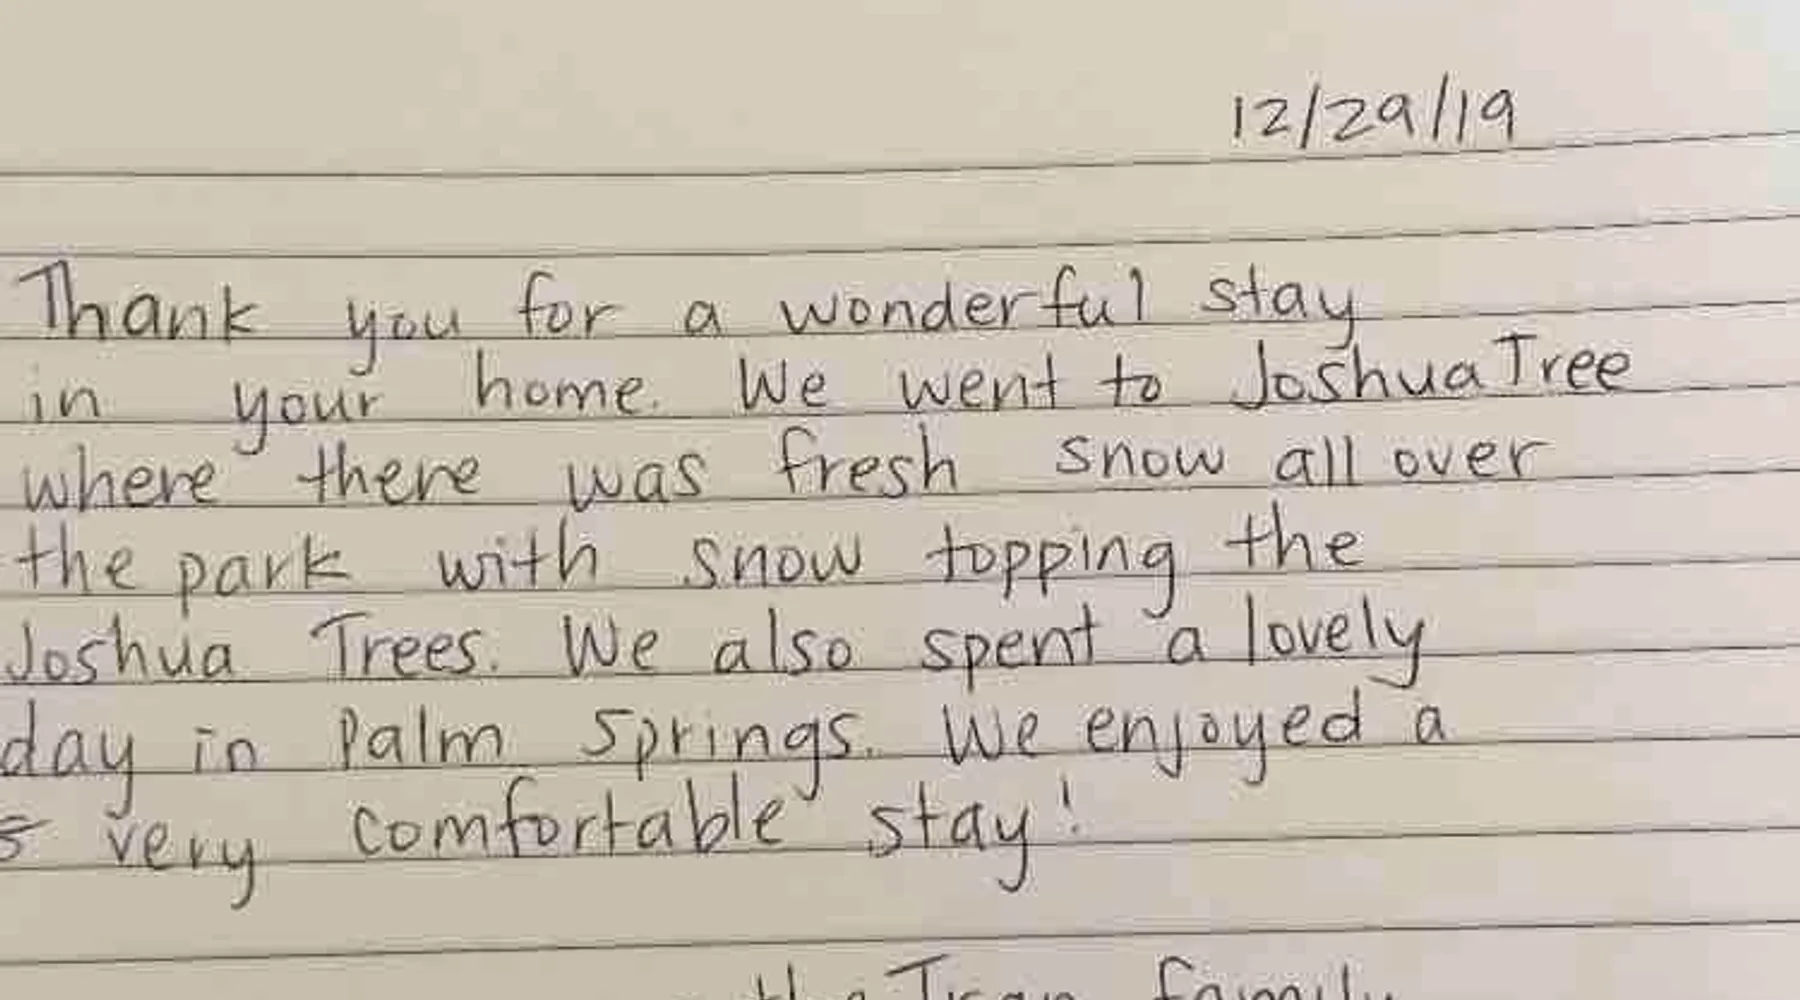 12/29/19
Thank you for a wonderful stay
in your home. We went to Joshua Tree
where there was fresh snow all over
the park with snow topping the
Joshua Trees. We also spent a lovely
day in Palm Springs. We enjoyed a
very comfortable stay!
the Tran family